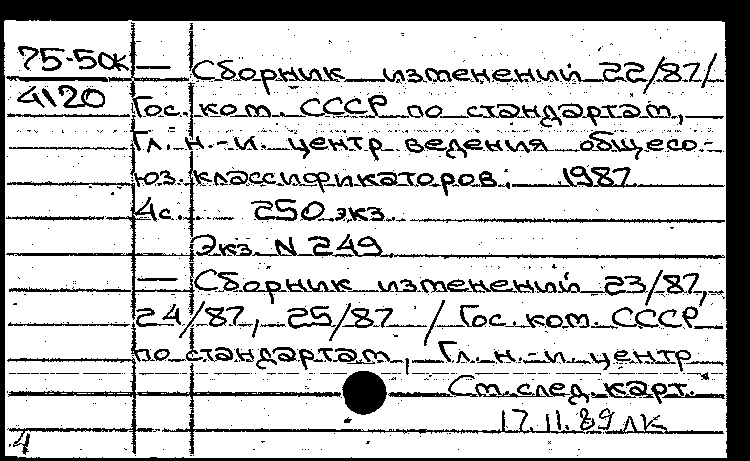 75-50к — Сборник изменений 22/87/
4120 Гос. ком. СССР по стандартам,
Гл. н.-и. центр ведения общесо-
юз. классификаторов, 1987
4с. 250 экз.
Экз. N 249
— Сборник изменений 23/87,
24/87, 25/87 / Гос. ком. СССР
по стандартам, Гл. н.-и. центр
См. след. карт.
17.11.89 ЛК
4